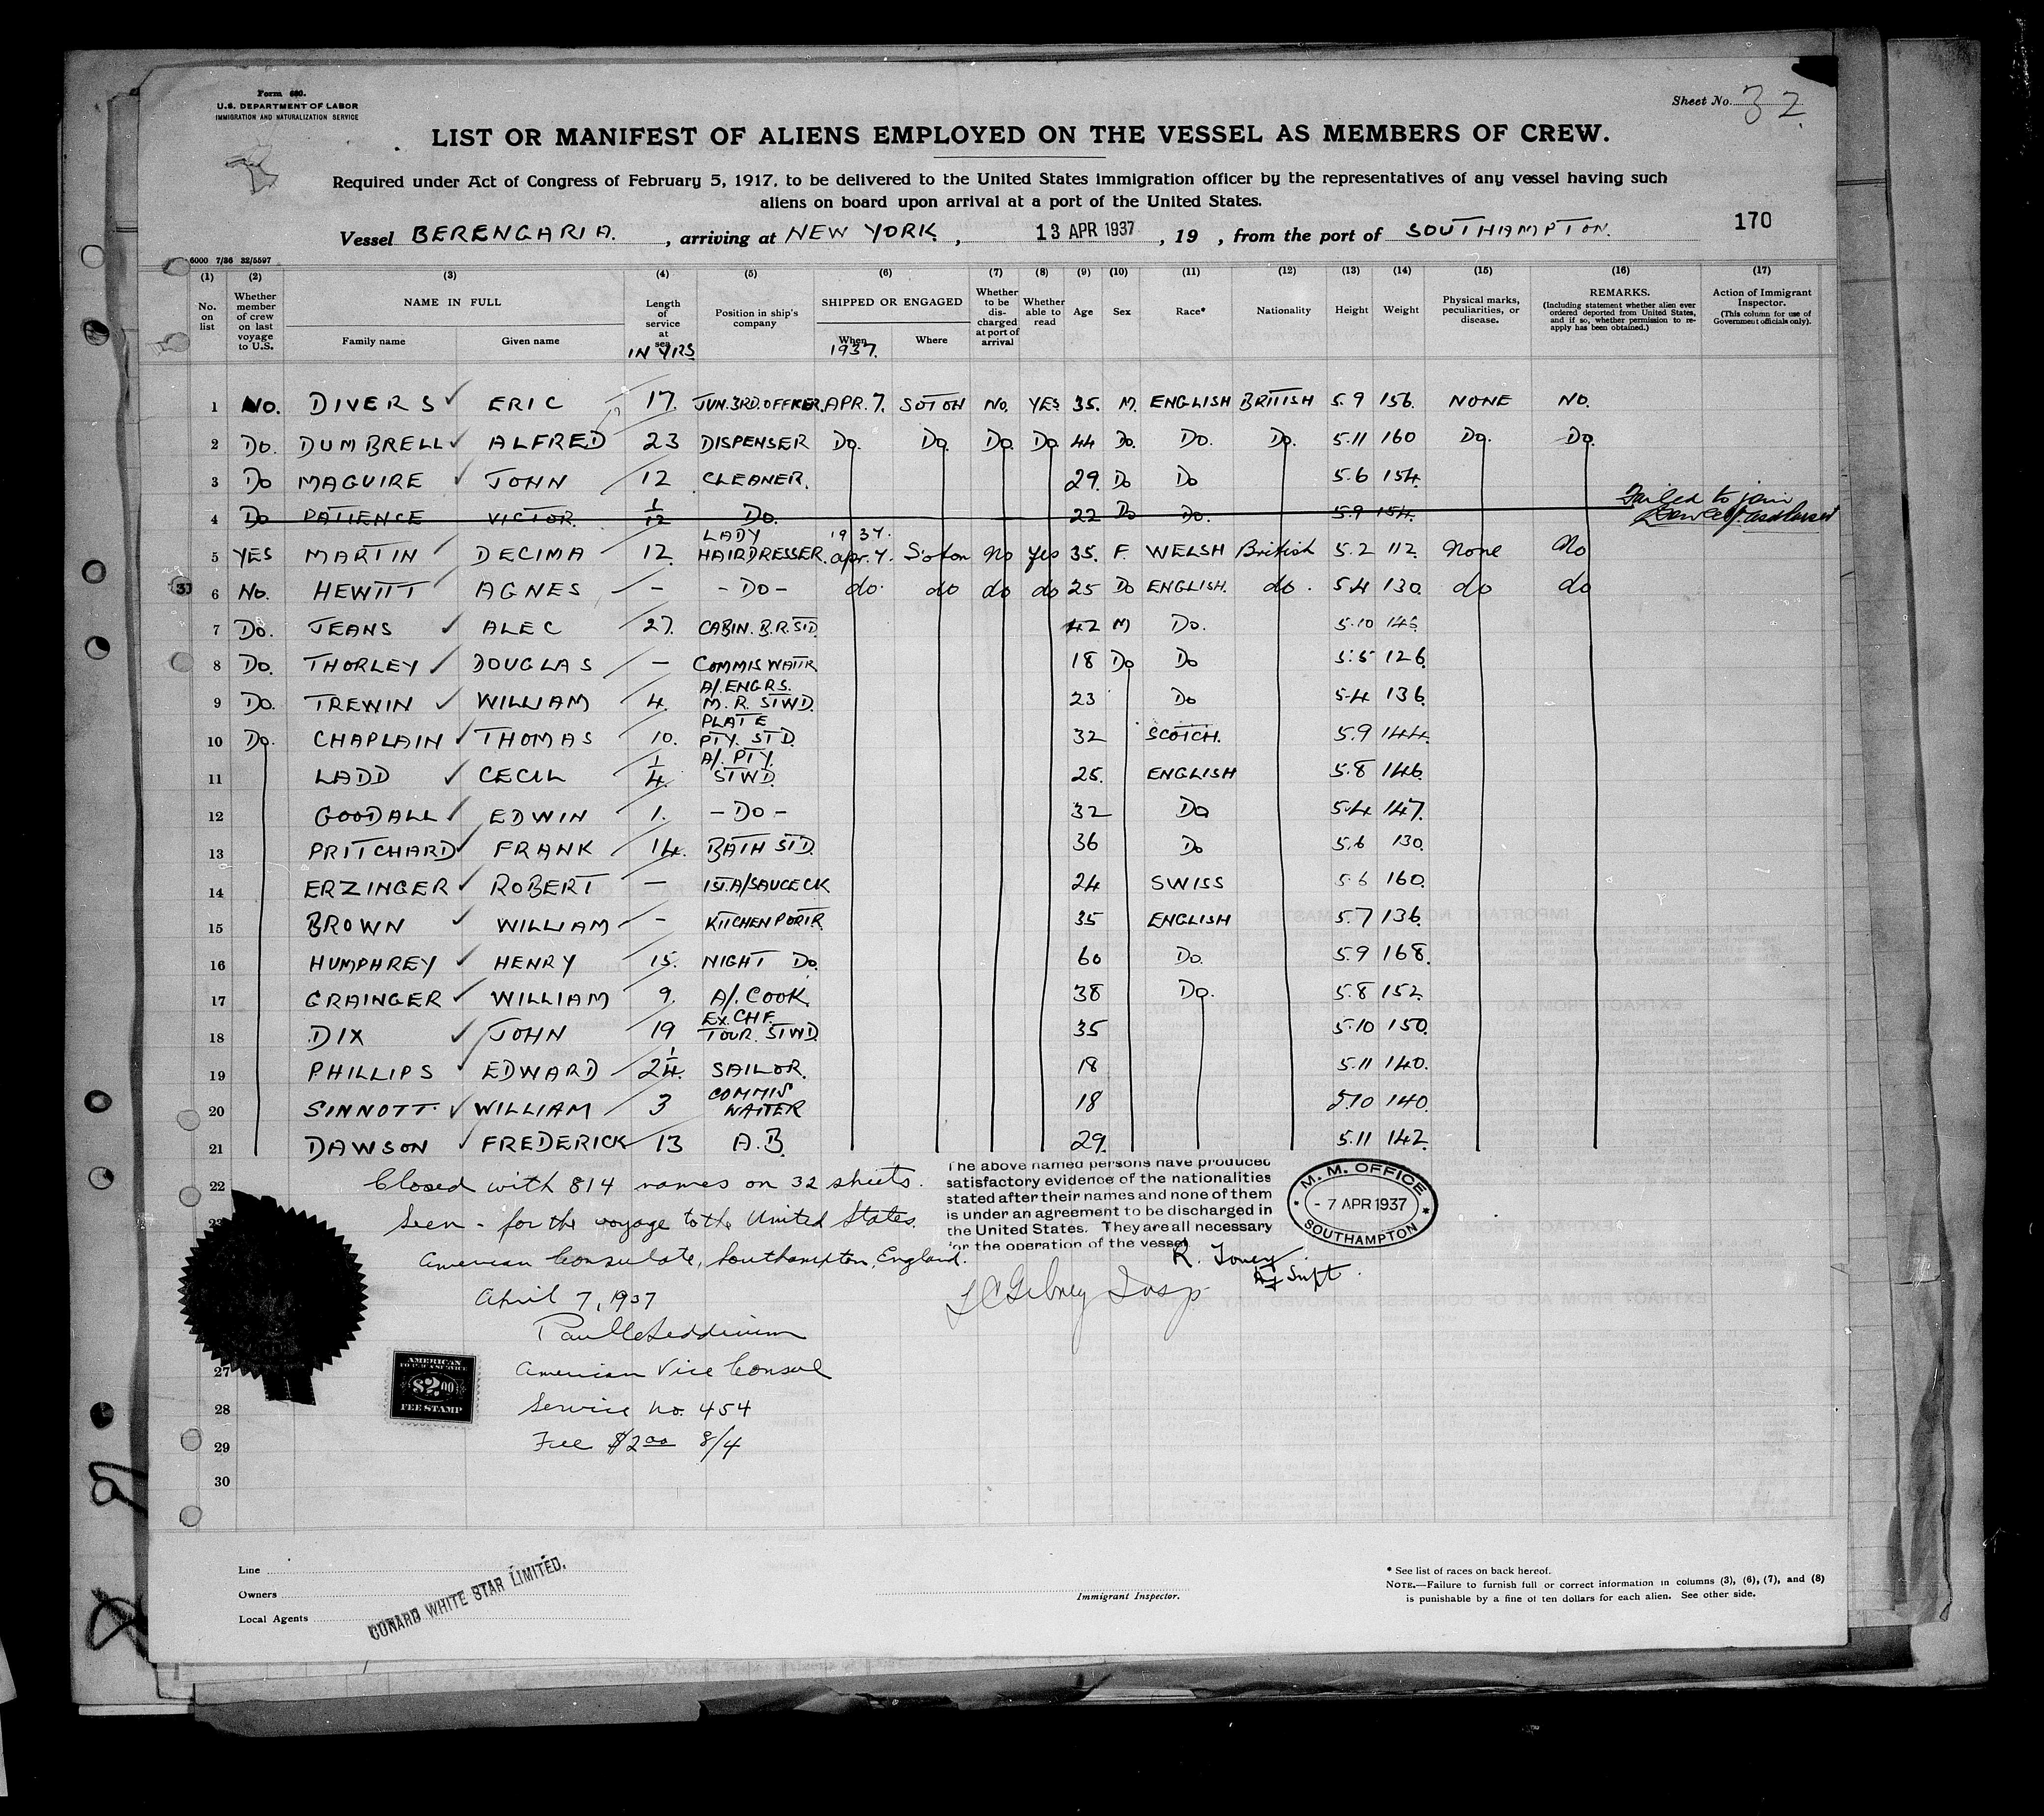 Form 680.
U.S. DEPARTMENT OF LABOR
IMMIGRATION AND NATURALIZATION SERVICE
Sheet No. 32
LIST OR MANIFEST OF ALIENS EMPLOYED ON THE VESSEL AS MEMBERS OF CREW.
Required under Act of Congress of February 5, 1917, to be delivered to the United States immigration officer by the representatives of any vessel having such
aliens on board upon arrival at a port of the United States.
170
Vessel BERENGARIA. , arriving at NEW YORK , 13 APR 1937 , 19 , from the port of SOUTHAMPTON.
6000 7/36 32/5597
(1) (2) (3) (4) (5) (6) (7) (8) (9) (10) (11) (12) (13) (14) (15) (16) (17)
No. on list
Whether member of crew on last voyage to U.S.
NAME IN FULL
Family name Given name
Length of service at sea IN YRS
Position in ship's company
SHIPPED OR ENGAGED
When 1937. Where
Whether to be discharged at port of arrival
Whether able to read
Age Sex Race* Nationality Height Weight
Physical marks, peculiarities, or disease.
REMARKS.
(Including statement whether alien ever ordered deported from United States, and if so, whether permission to re-apply has been obtained.)
Action of Immigrant Inspector.
(This column for use of Government officials only).
1 NO. DIVERS ✓ ERIC 17. JUN. 3RD. OFFICER. APR. 7. SOTON NO. YES 35. M. ENGLISH BRITISH 5.9 156. NONE NO.
2 DO. DUMBRELL ✓ ALFRED 23 DISPENSER DO. DO. DO. DO. 44 DO. DO. DO. 5.11 160 DO. DO.
3 DO MAGUIRE ✓ JOHN 12 CLEANER. 29. DO DO 5.6 154.
4 DO PATIENCE VICTOR. 1/12 DO. 22 DO DO. 5.9 154. Failed to join
5 YES MARTIN ✓ DECIMA 12. LADY HAIRDRESSER. 1937. Apr. 7. S'oton No Yes 35. F. WELSH British 5.2 112. None No
6 NO. HEWITT ✓ AGNES – - DO - do do do do 25 DO ENGLISH. do. 5.4 130. do do
7 DO. JEANS ✓ ALEC 27. CABIN. B.R. STD. 42 M DO. 5.10 146.
8 DO. THORLEY ✓ DOUGLAS – COMMIS WAITR 18 DO DO 5.5 126.
9 DO. TREWIN ✓ WILLIAM 4. A/. ENGRS. M.R. STWD. 23 DO 5.4 136.
10 DO. CHAPLAIN ✓ THOMAS 10. PLATE PTY. STD. 32 SCOTCH. 5.9 144.
11 LADD ✓ CECIL 1/4. A/. PTY. STWD. 25. ENGLISH 5.8 146.
12 GOODALL ✓ EDWIN 1. - DO - 32 DO 5.4 147.
13 PRITCHARD ✓ FRANK 14. BATH STD. 36 DO 5.6 130.
14 ERZINGER ✓ ROBERT – 1ST. A/SAUCE CK 24 SWISS 5.6 160.
15 BROWN ✓ WILLIAM – KITCHEN PORTR. 35 ENGLISH 5.7 136.
16 HUMPHREY ✓ HENRY 15. NIGHT DO. 60 DO. 5.9 168.
17 GRAINGER ✓ WILLIAM 9. A/. COOK. 38 DO. 5.8 152.
18 DIX ✓ JOHN 19 EX. CHF. TOUR. STWD. 35 5.10 150.
19 PHILLIPS ✓ EDWARD 2 1/4. SAILOR. 18 5.11 140.
20 SINNOTT. ✓ WILLIAM 3 COMMIS WAITER 18 5.10 140.
21 DAWSON ✓ FREDERICK 13 A.B. 29. 5.11 142.
22 Closed with 814 names on 32 sheets.
Seen - for the voyage to the United States.
American Consulate, Southampton, England.
April 7, 1937
American Vice Consul
Service No. 454
Fee $2.00 8/4
27
28
29
30
The above named persons have produced
satisfactory evidence of the nationalities
stated after their names and none of them
is under an agreement to be discharged in
the United States. They are all necessary
for the operation of the vessel
R. Toney
Supt.
M. M. OFFICE
- 7 APR 1937
SOUTHAMPTON
AMERICAN
$2.00
FEE STAMP
Line
Owners
Local Agents
CUNARD WHITE STAR LIMITED.
Immigrant Inspector.
* See list of races on back hereof.
NOTE.—Failure to furnish full or correct information in columns (3), (6), (7), and (8)
is punishable by a fine of ten dollars for each alien. See other side.